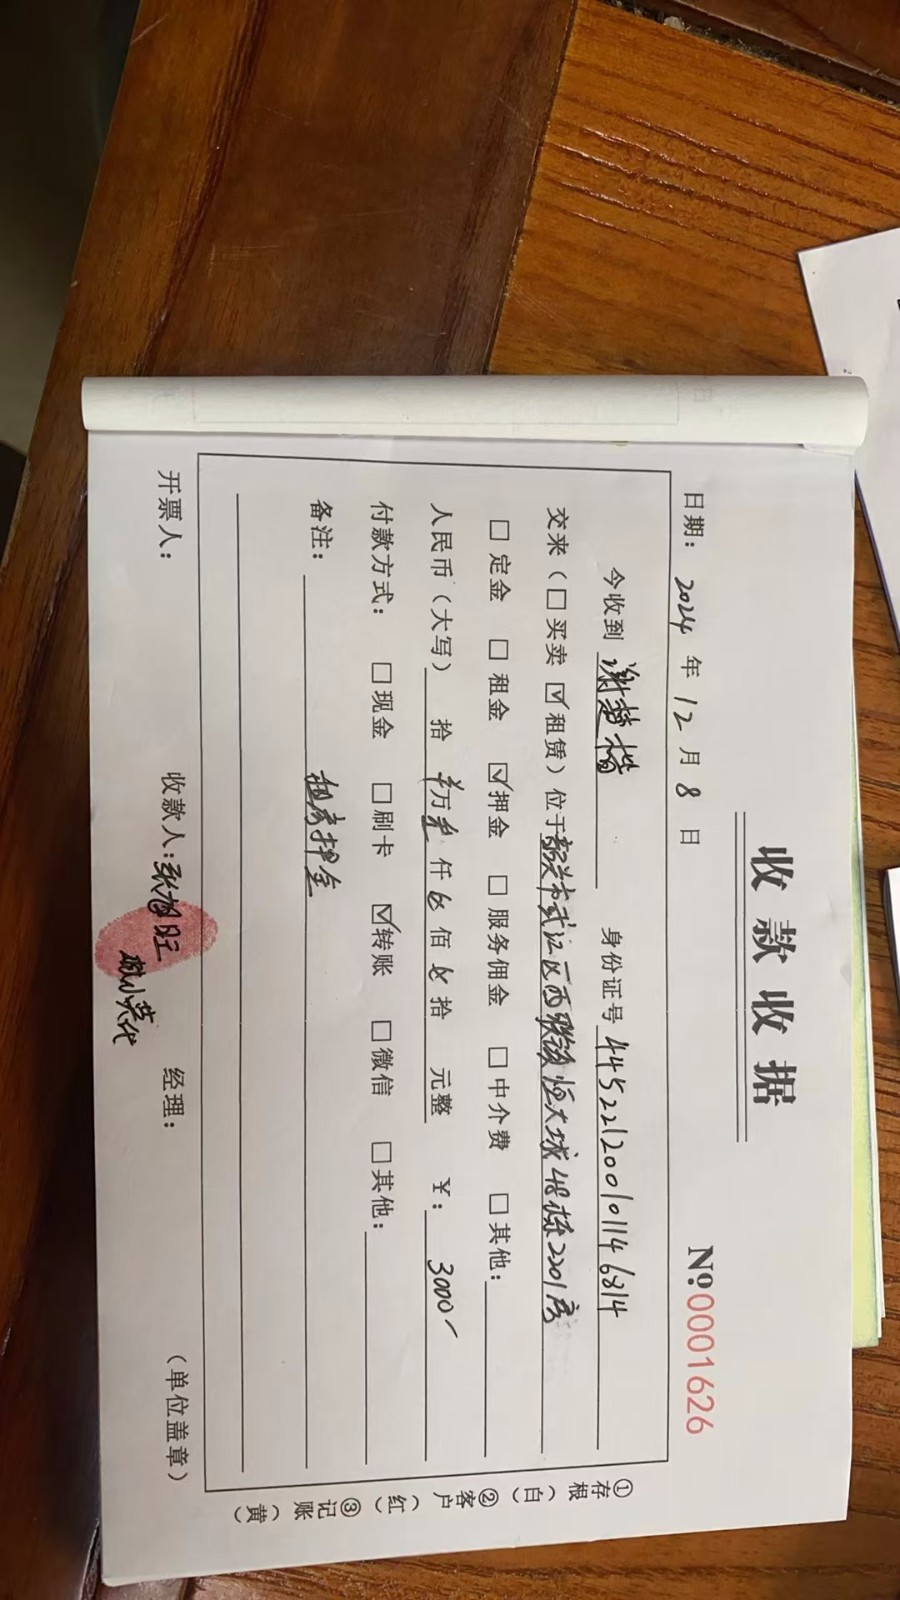 收款收据
№0001626
日期：2024年12月8日
今收到 谢楚楷 身份证号 445221200101146814
交来（□买卖 ☑租赁）位于韶关市武江区西联镇恒大城48栋2201房
□定金 □租金 ☑押金 □服务佣金 □中介费 □其他：
人民币（大写） 拾 万叁仟 佰 拾 元整 ￥：3000
付款方式： □现金 □刷卡 ☑转账 □微信 □其他：
备注： 租房押金
开票人： 收款人：张旭旺 经理： （单位盖章）
代
①存根（白） ②客户（红） ③记账（黄）